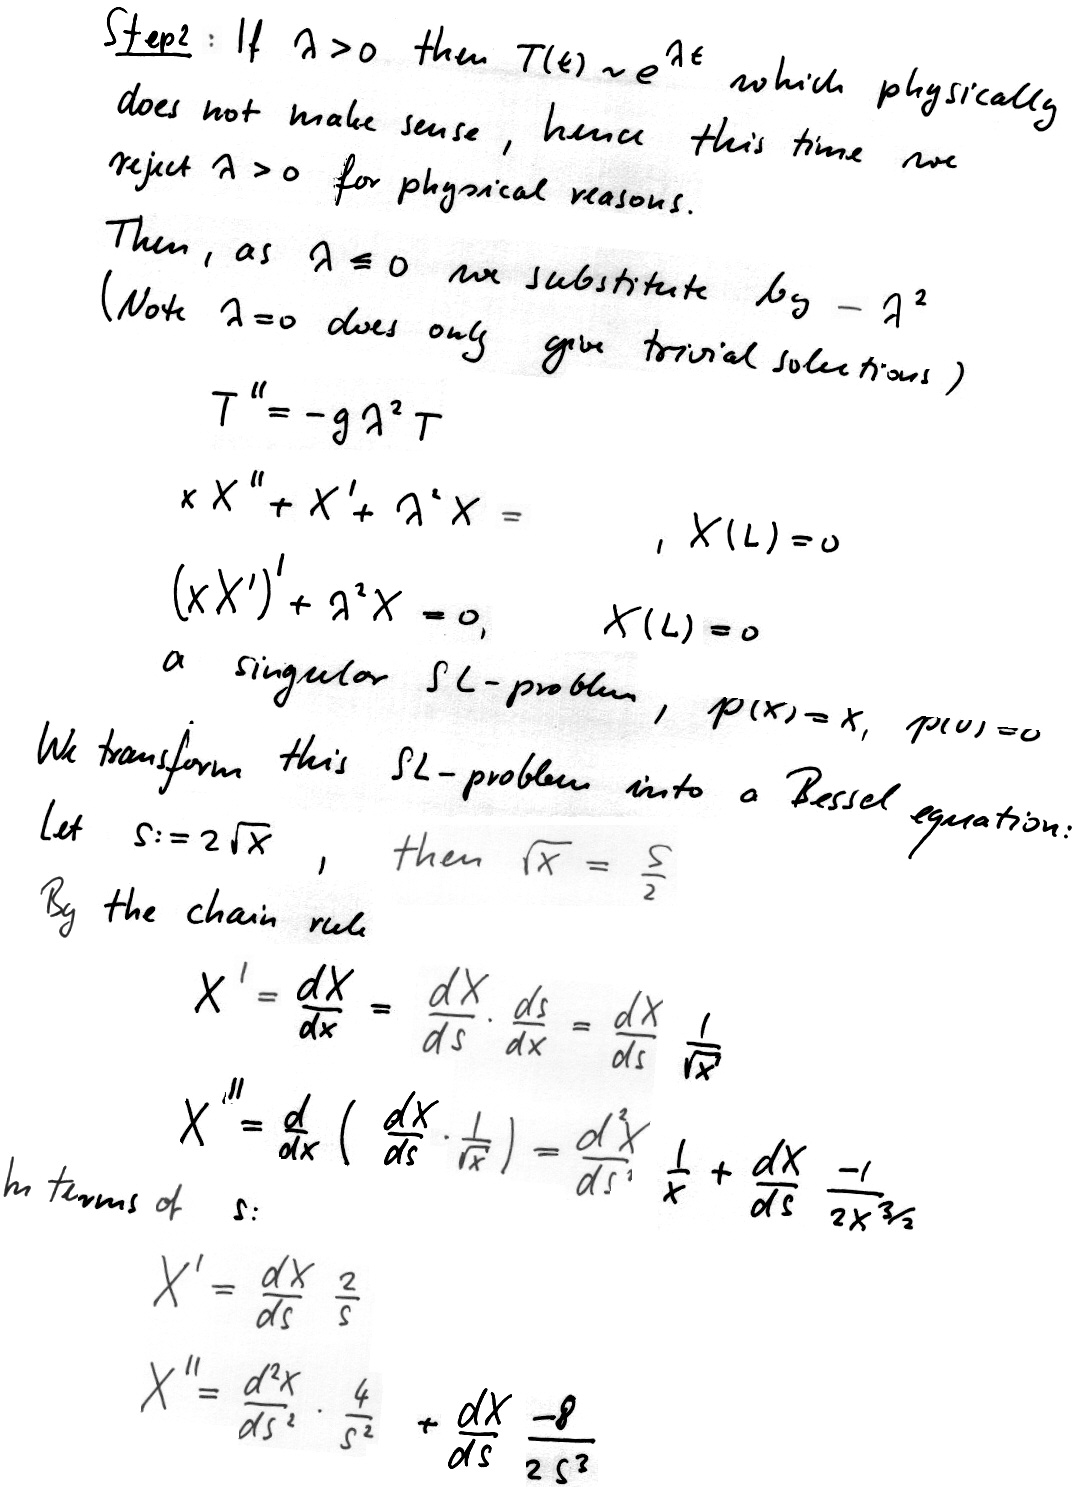 Step2: If λ>0 then T(t) ~ e^{λt} which physically
does not make sense, hence this time we
reject λ>0 for physical reasons.
Then, as λ ≤ 0 we substitute by - λ²
(Note λ=0 does only give trivial solutions)
T'' = -gλ²T
xX'' + X' + λ²X = , X(L)=0
(xX')' + λ²X = 0, X(L)=0
a singular SL-problem, p(x)=x, p(0)=0
We transform this SL-problem into a Bessel equation:
Let s:=2√x, then √x = s/2
By the chain rule
X' = dX/dx = dX/ds · ds/dx = dX/ds 1/√x
X'' = d/dx ( dX/ds · 1/√x ) = d²X/ds² 1/x + dX/ds -1/2x^{3/2}
In terms of s:
X' = dX/ds 2/s
X'' = d²X/ds² · 4/s² + dX/ds -8/2s³